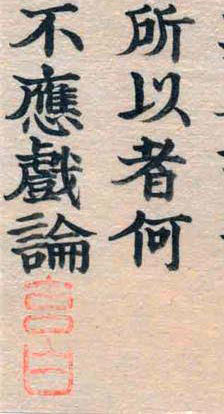 所以者何
不應戲論